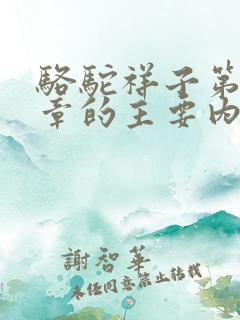 駱駝祥子第
章的主要内
謝智華
未經同意禁止轉載